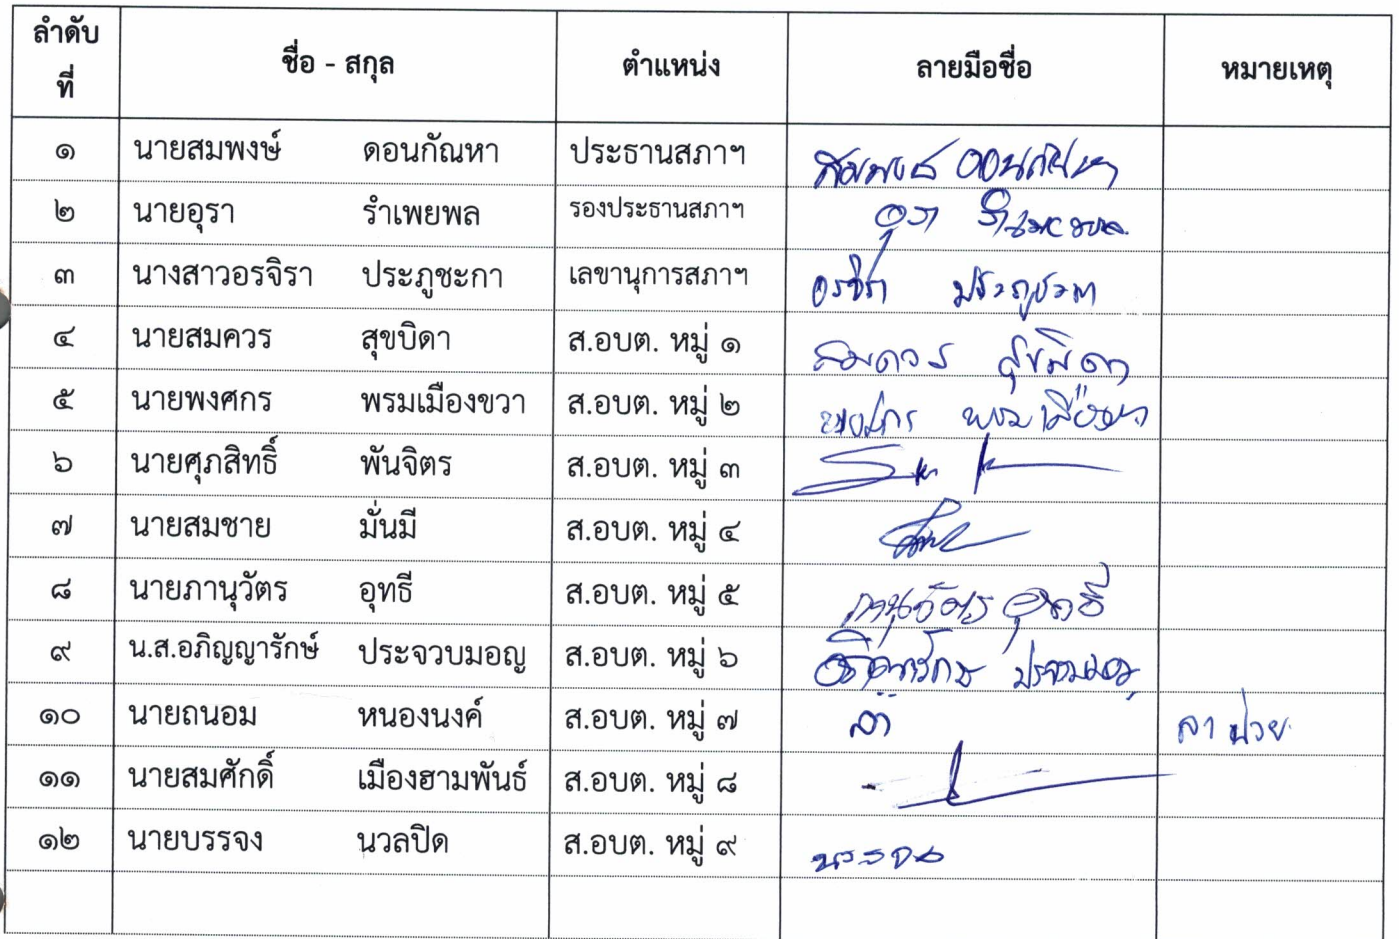 ลำดับที่ ชื่อ - สกุล ตำแหน่ง ลายมือชื่อ หมายเหตุ
๑ นายสมพงษ์ ดอนกัณหา ประธานสภาฯ สมพงษ์ ดอนกัณหา
๒ นายอุรา รำเพยพล รองประธานสภาฯ อุรา รำเพยพล
๓ นางสาวอรจิรา ประภูชะกา เลขานุการสภาฯ อรจิรา ประภูชะกา
๔ นายสมควร สุขบิดา ส.อบต. หมู่ ๑ สมควร สุขบิดา
๕ นายพงศกร พรมเมืองขวา ส.อบต. หมู่ ๒ พงศกร พรมเมืองขวา
๖ นายศุภสิทธิ์ พันจิตร ส.อบต. หมู่ ๓
๗ นายสมชาย มั่นมี ส.อบต. หมู่ ๔
๘ นายภานุวัตร อุทธี ส.อบต. หมู่ ๕ ภานุวัตร อุทธี
๙ น.ส.อภิญญารักษ์ ประจวบมอญ ส.อบต. หมู่ ๖ อภิญญารักษ์ ประจวบมอญ
๑๐ นายถนอม หนองนงค์ ส.อบต. หมู่ ๗ ลา ลาป่วย
๑๑ นายสมศักดิ์ เมืองฮามพันธ์ ส.อบต. หมู่ ๘
๑๒ นายบรรจง นวลปิด ส.อบต. หมู่ ๙ บรรจง